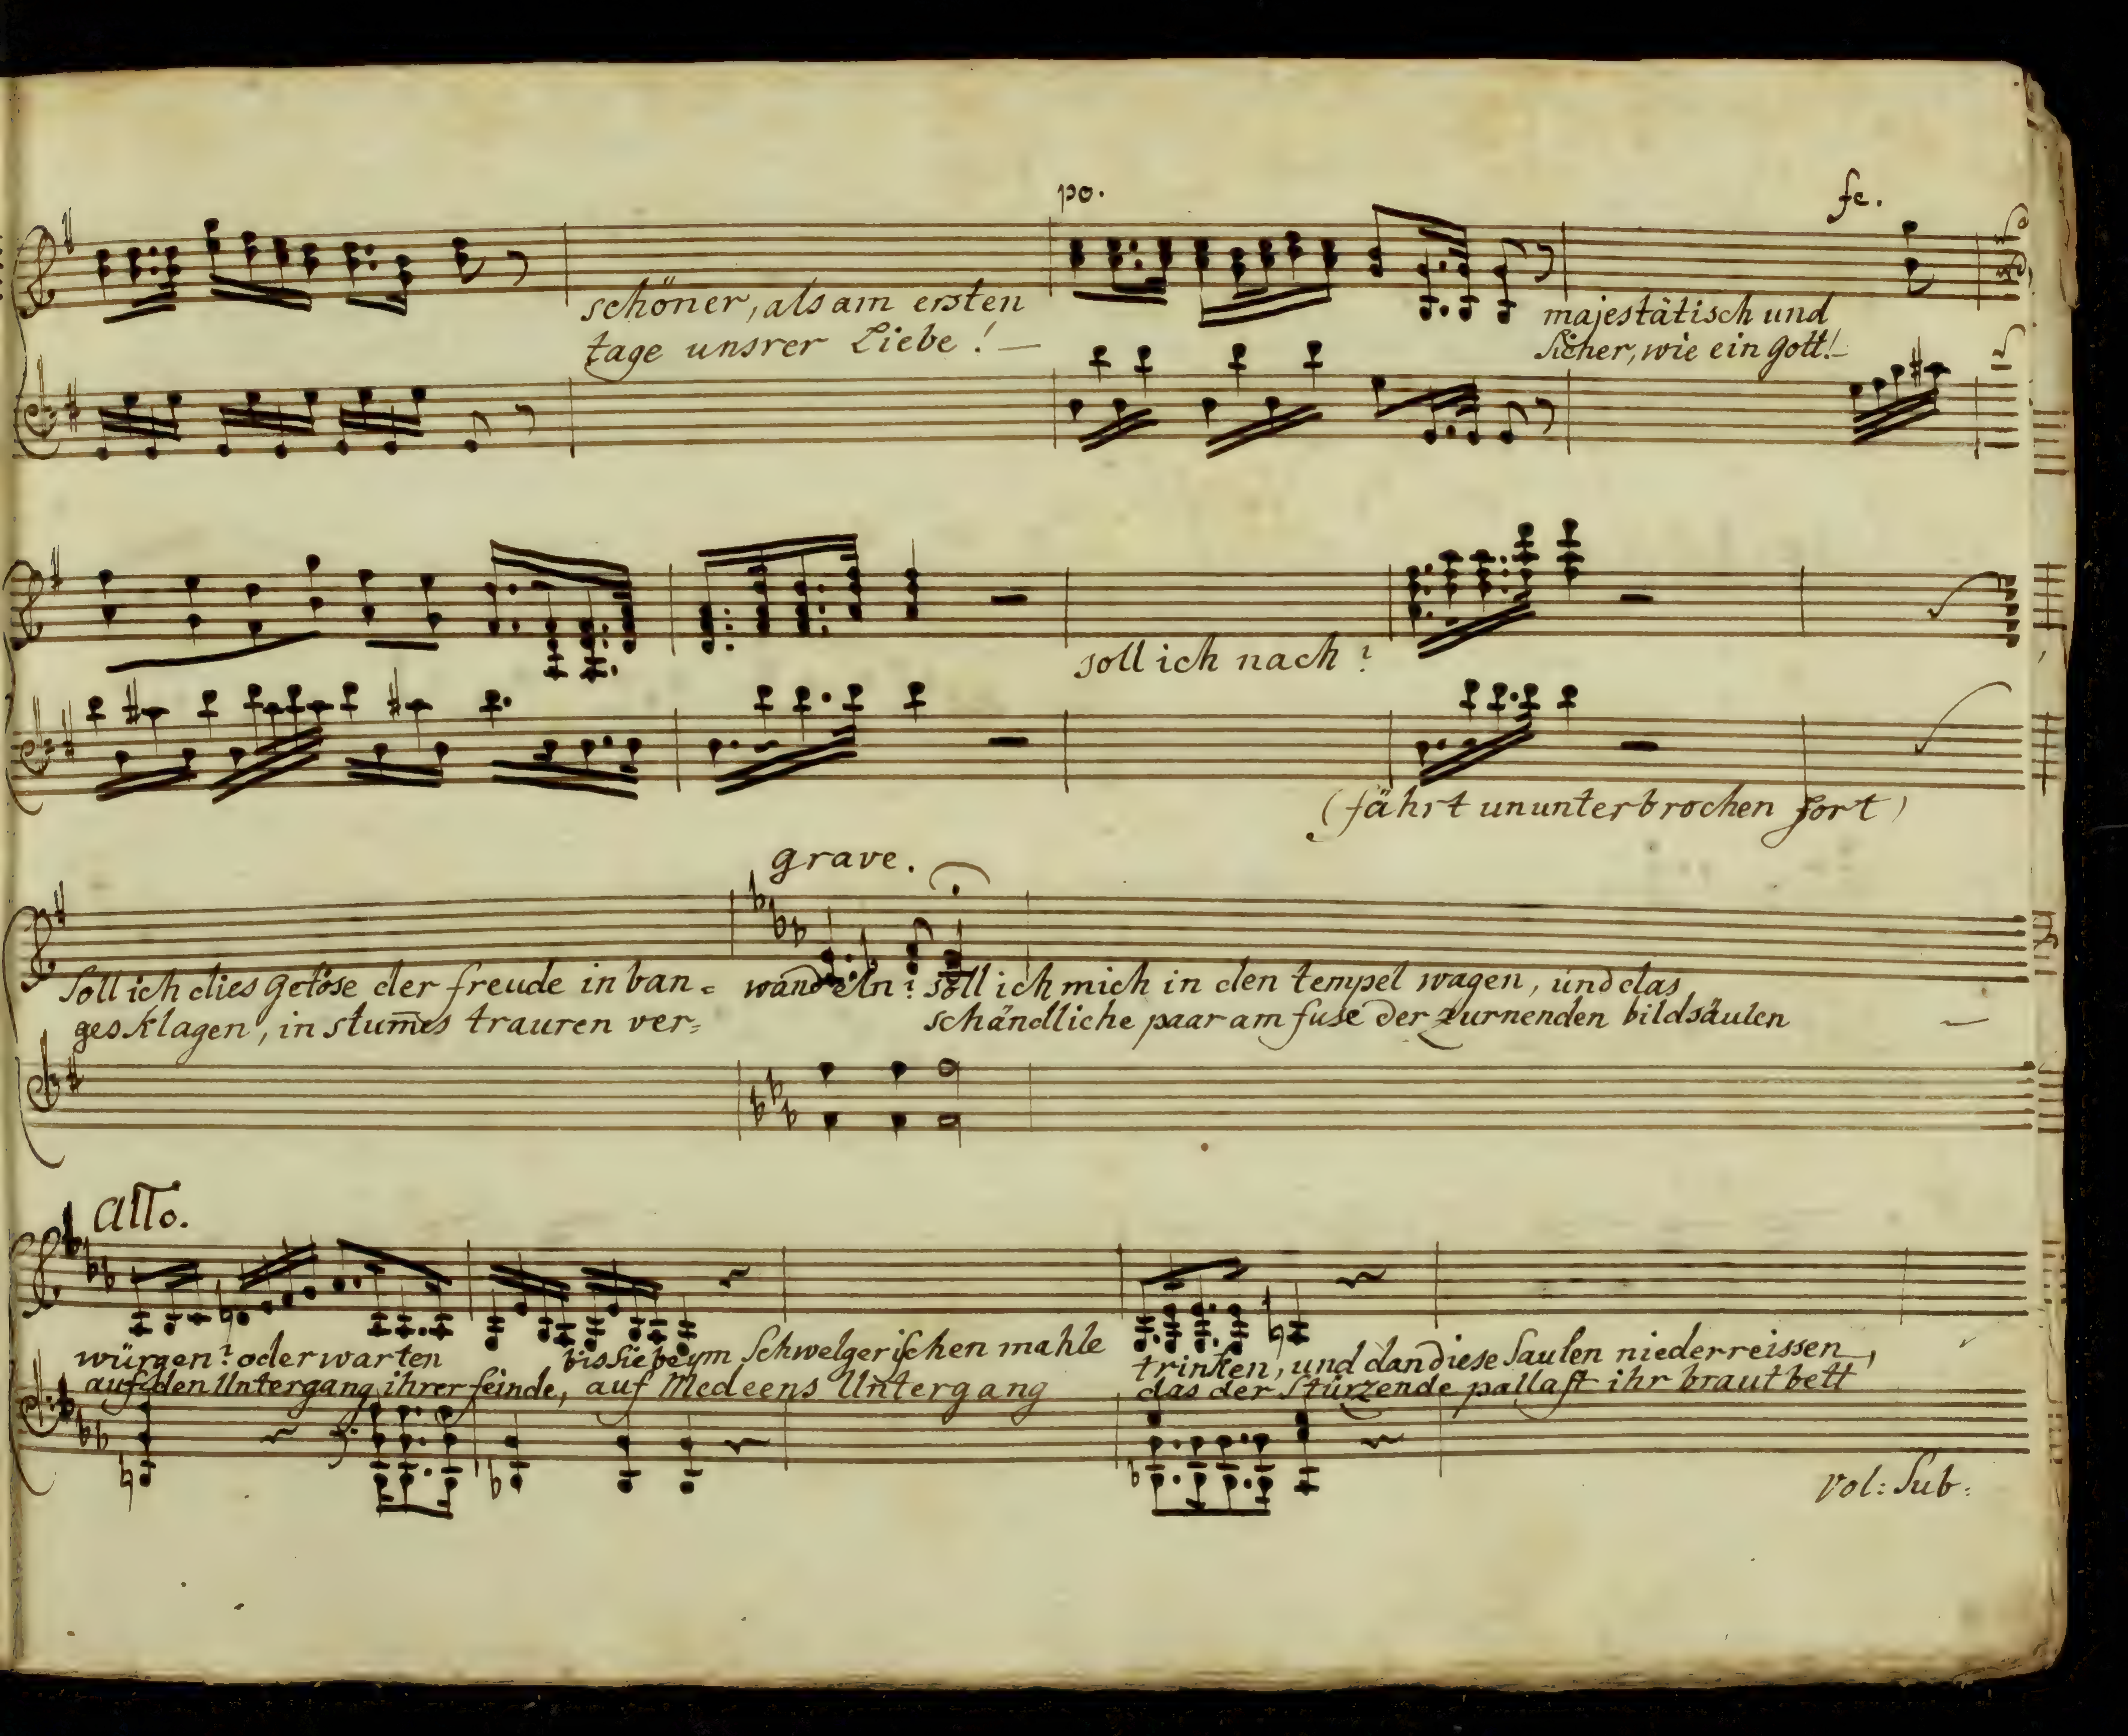 po.
fe.
schöner, als am ersten
tage unsrer Liebe! —
majestätisch und
Sicher, wie ein Gott! –
soll ich nach?
(fährt ununterbrochen fort)
grave.
Soll ich dies getöse der freude in ban=
ges Klagen, in stum̄es trauren ver=
wandeln? soll ich mich in den tempel wagen, und das
schändliche paar am fuse der zurnenden bildsäulen —
Allo.
würgen? oder warten
auf den Untergang ihrer feinde, auf Medeens Untergang
bis Sie beym Schwelgerischen mahle
trinken, und dan diese Saulen niederreissen,
das der Stürzende pallast ihr brautbett
Vol: Sub: